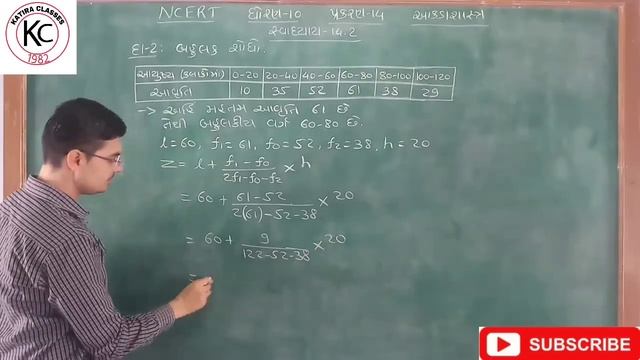 KATIRA CLASSES
KC
1982
NCERT ધોરણ-10 પ્રકરણ-14 આંકડાશાસ્ત્ર
સ્વાધ્યાય-14.2
દા-2: બહુલક શોધો.
આયુષ્ય (કલાકોમાં) 0-20 20-40 40-60 60-80 80-100 100-120
આવૃત્તિ 10 35 52 61 38 29
→ અહીં મહત્તમ આવૃત્તિ 61 છે
તેથી બહુલકીય વર્ગ 60-80 છે.
l=60, f1=61, f0=52, f2=38, h=20
Z = l + (f1-f0)/(2f1-f0-f2) × h
= 60 + (61-52)/(2(61)-52-38) × 20
= 60 + 9/(122-52-38) × 20
=
SUBSCRIBE